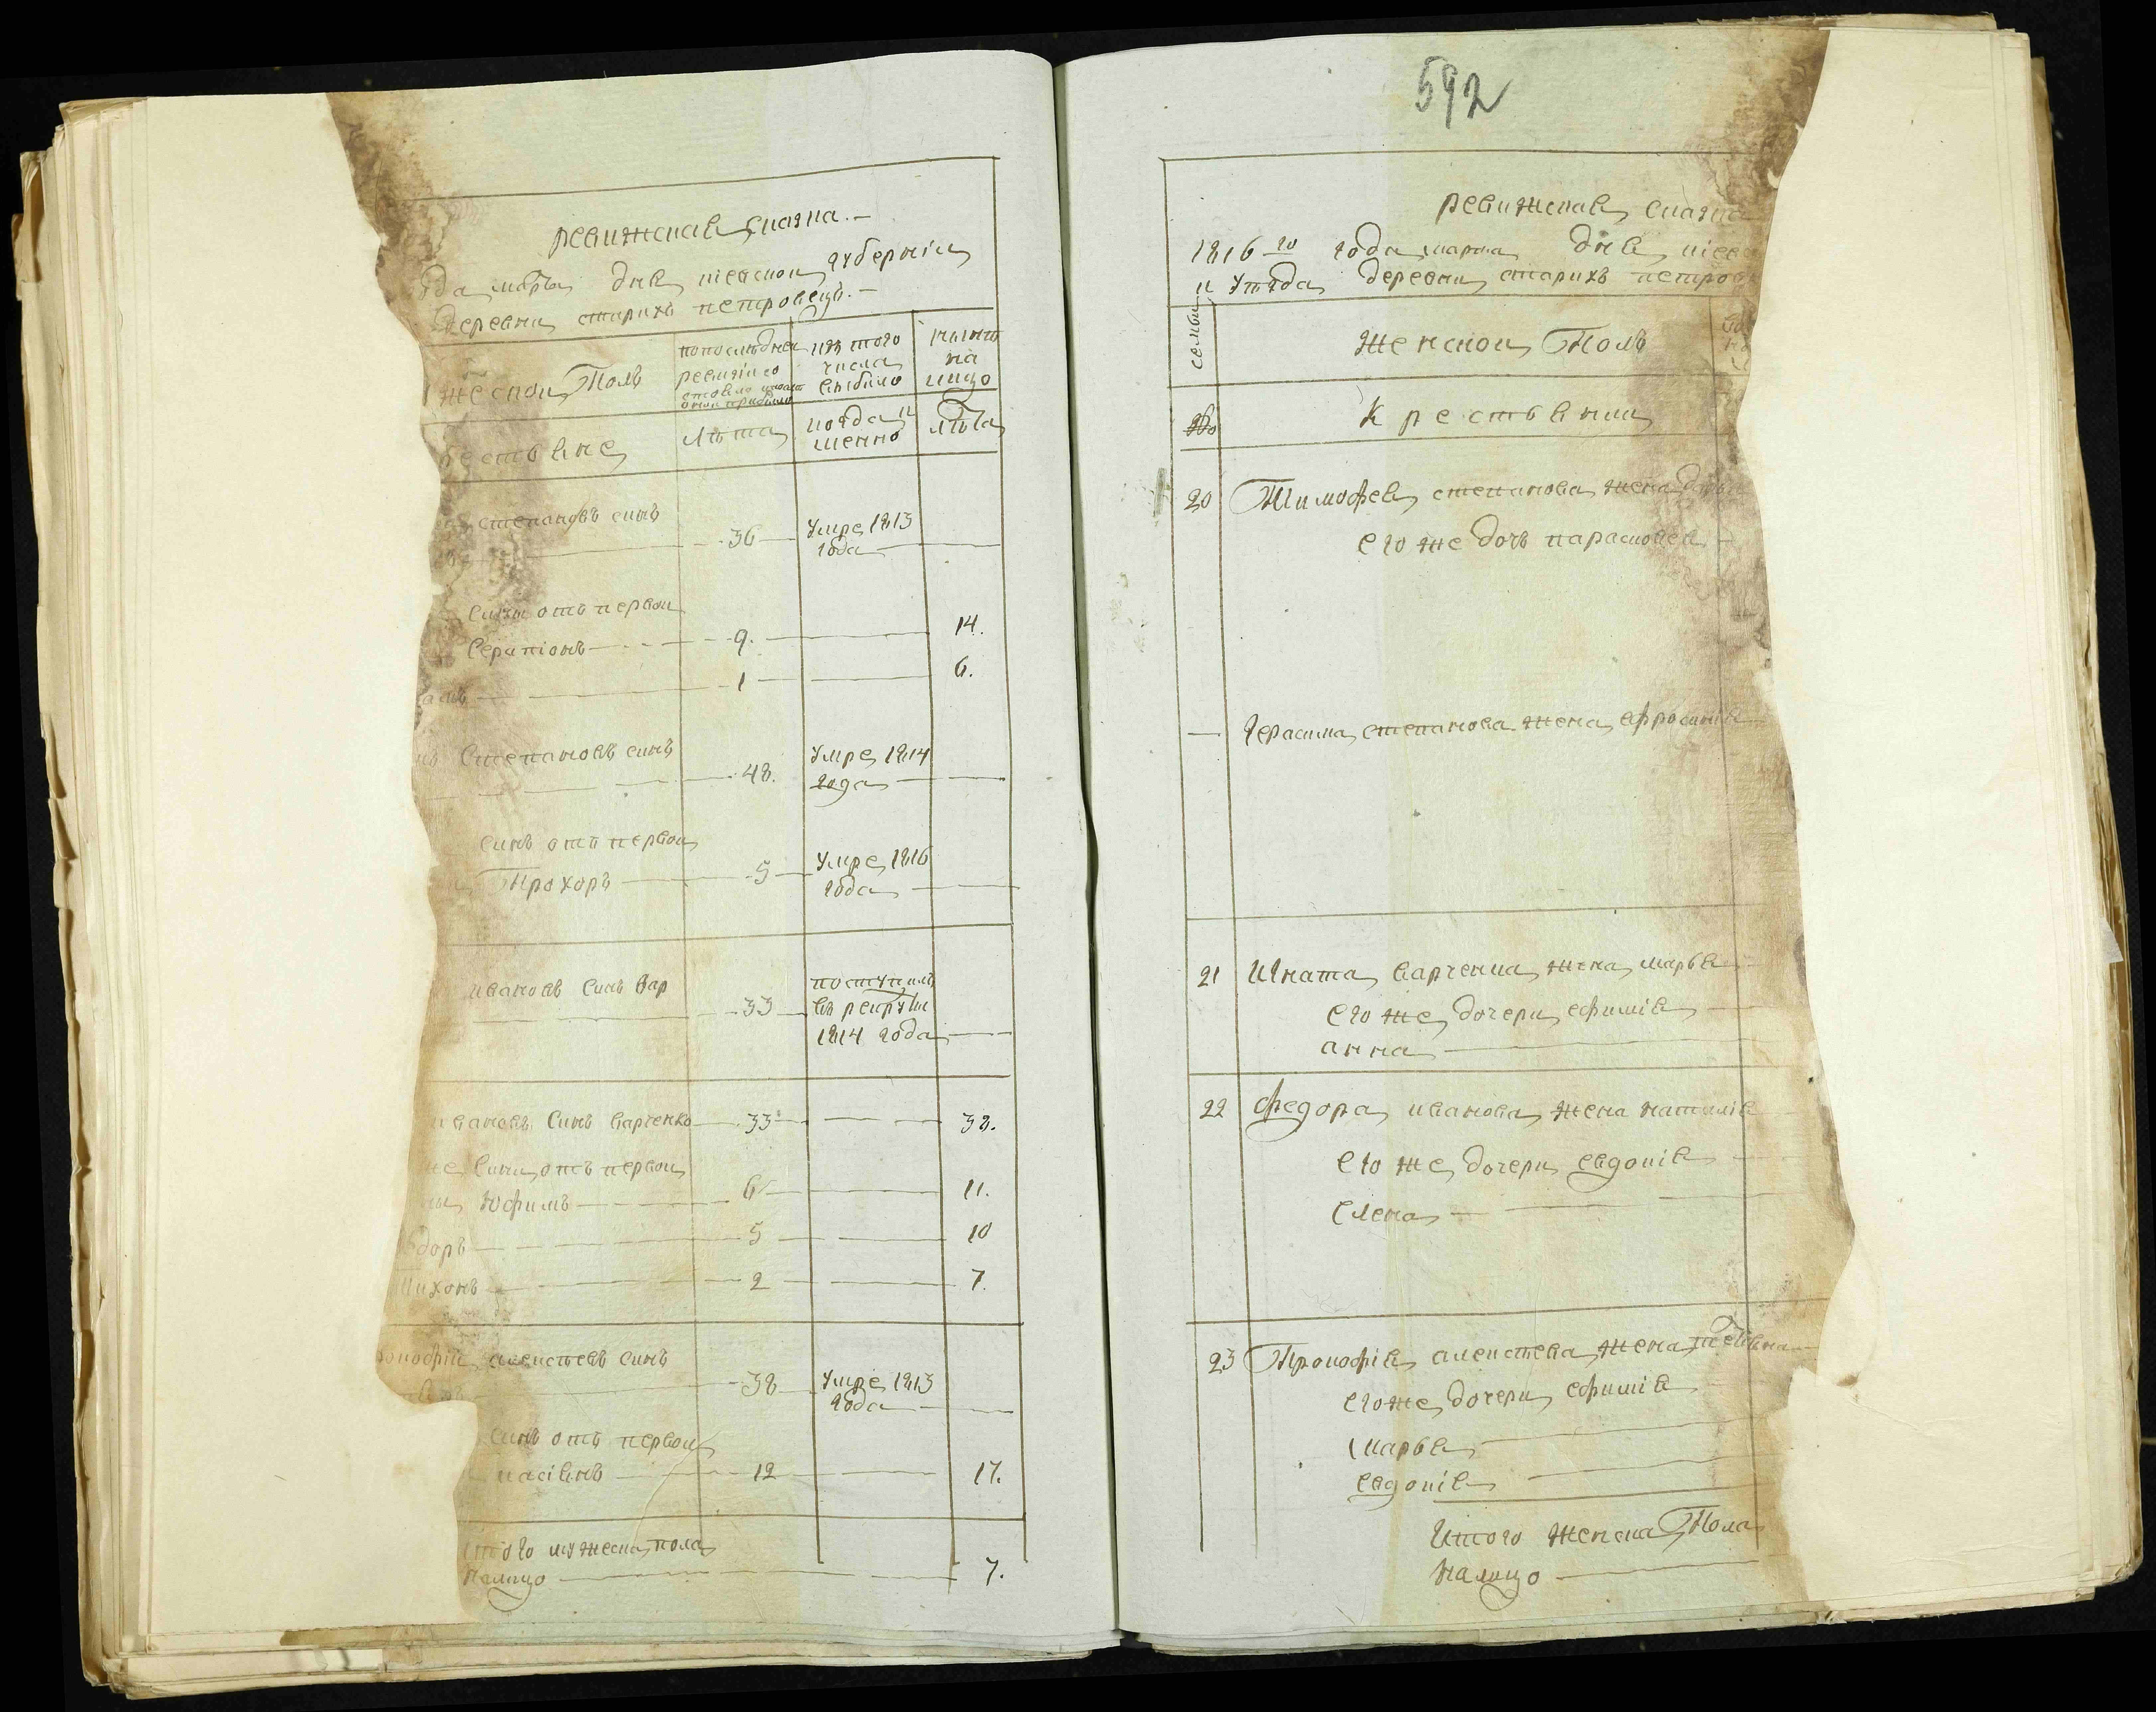 ревижская скаска.
да марта дня киевской губернии
деревни старихъ петровецъ.
жеской Полъ
попоследней ревизии со
изъ того числа выбило
нынѣ на лицо
лѣта
когда именно
лѣта
степановъ синъ
36
Умре 1813 года
сини отъ первой
Серапионъ
9.
14.
1
6.
Степановъ синъ
48.
Умре 1814 года
синъ отъ первой
Прохоръ
5
Умре 1816 года
ивановъ синъ Вар
33
поступилъ въ рекруты 1814 года
ивановъ Синъ варченко
33
38.
же Сини отъ первой
Юфимъ
6
11.
доръ
5
10
Тихонъ
2
7.
алексѣевъ синъ
38
Умре 1813 года
синъ отъ первой
касіянъ
12
17.
того мужеска пола
налицо
7.
592
ревижская скаска
1816 го года марта дня киев
и уѣзда деревни старихъ петров
семьи
Женской Полъ
Крестьянки
20 Тимофея степанова жена
его же дочъ парасковея
Герасима степанова жена ефросинія
21 Игната варченка жена марья
его же дочери ефимія
анна
22 Федора иванова жена наталія
его же дочери евдокія
елена
23 Прокофія алексѣева жена
его же дочери ефимія
марья
евдокія
Итого женска Пола
налицо